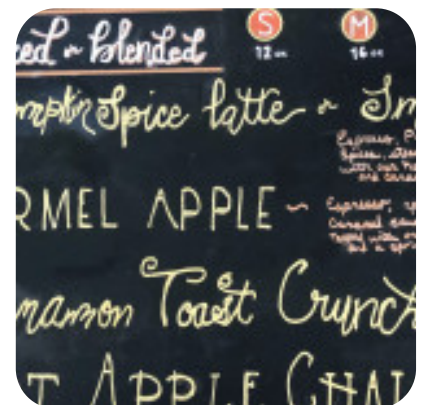 ced or blended
S M
12 oz 16 oz
mpkin Spice latte ~ Sm
Espresso, P
Spices, stea
with our
and cara
RMEL APPLE ~ Espresso, 
Caramel
topped with
and a
namon Toast Crunch
T APPLE CHAI